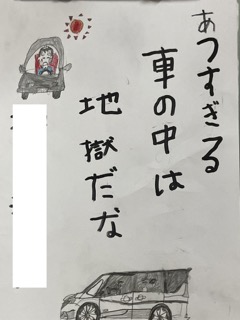 あつすぎる
車の中は
地獄だな